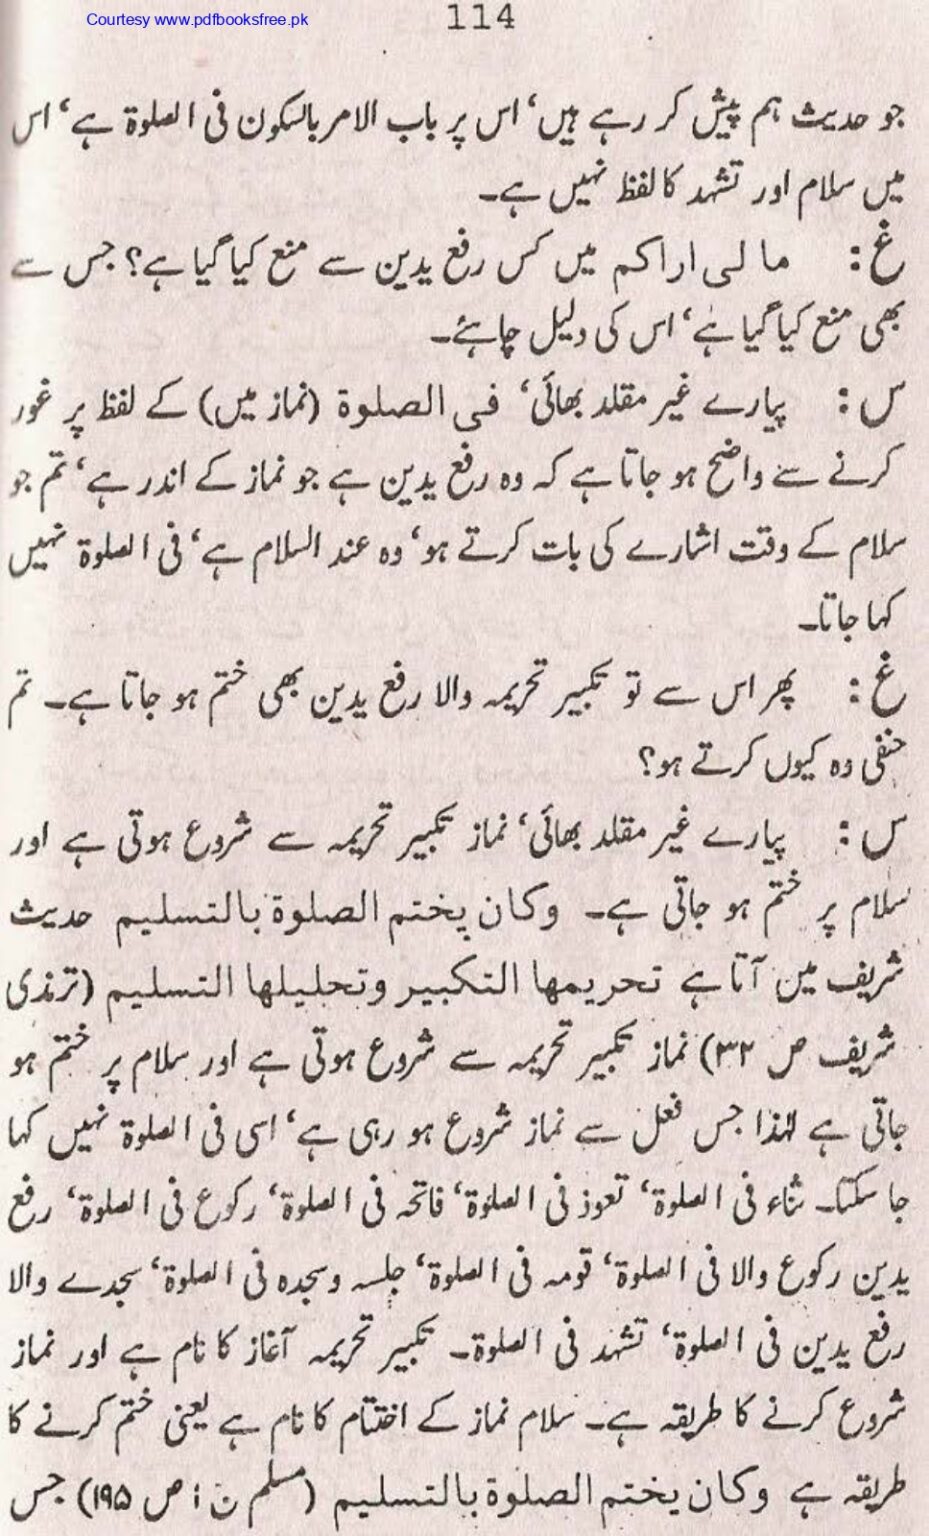 Courtesy www.pdfbooksfree.pk
114
جو حدیث ہم پیش کر رہے ہیں‘ اس پر باب الامر بالسکون فی الصلوۃ ہے‘ اس
میں سلام اور تشہد کا لفظ نہیں ہے۔
غ: ما لی اراکم میں کس رفع یدین سے منع کیا گیا ہے؟ جس سے
بھی منع کیا گیا ہے‘ اس کی دلیل چاہئے۔
س: پیارے غیر مقلد بھائی‘ فی الصلوۃ (نماز میں) کے لفظ پر غور
کرنے سے واضح ہو جاتا ہے کہ وہ رفع یدین ہے جو نماز کے اندر ہے‘ تم جو
سلام کے وقت اشارے کی بات کرتے ہو‘ وہ عند السلام ہے‘ فی الصلوۃ نہیں
کہا جاتا۔
غ: پھر اس سے تو تکبیر تحریمہ والا رفع یدین بھی ختم ہو جاتا ہے۔ تم
حنفی وہ کیوں کرتے ہو؟
س: پیارے غیر مقلد بھائی‘ نماز تکبیر تحریمہ سے شروع ہوتی ہے اور
سلام پر ختم ہو جاتی ہے۔ وکان یختم الصلوۃ بالتسلیم حدیث
شریف میں آتا ہے تحریمها التکبیر وتحلیلها التسلیم (ترمذی
شریف ص ۳۲) نماز تکبیر تحریمہ سے شروع ہوتی ہے اور سلام پر ختم ہو
جاتی ہے لہٰذا جس فعل سے نماز شروع ہو رہی ہے‘ اسی فی الصلوۃ نہیں کہا
جا سکتا۔ ثناء فی الصلوۃ‘ تعوذ فی الصلوۃ‘ فاتحہ فی الصلوۃ‘ رکوع فی الصلوۃ‘ رفع
یدین رکوع والا فی الصلوۃ‘ قومہ فی الصلوۃ‘ جلسہ وسجدہ فی الصلوۃ‘ سجدے والا
رفع یدین فی الصلوۃ‘ تشہد فی الصلوۃ۔ تکبیر تحریمہ آغاز کا نام ہے اور نماز
شروع کرنے کا طریقہ ہے۔ سلام نماز کے اختتام کا نام ہے یعنی ختم کرنے کا
طریقہ ہے وکان یختم الصلوۃ بالتسلیم (مسلم ن ۱ ص ۱۹۵) جس